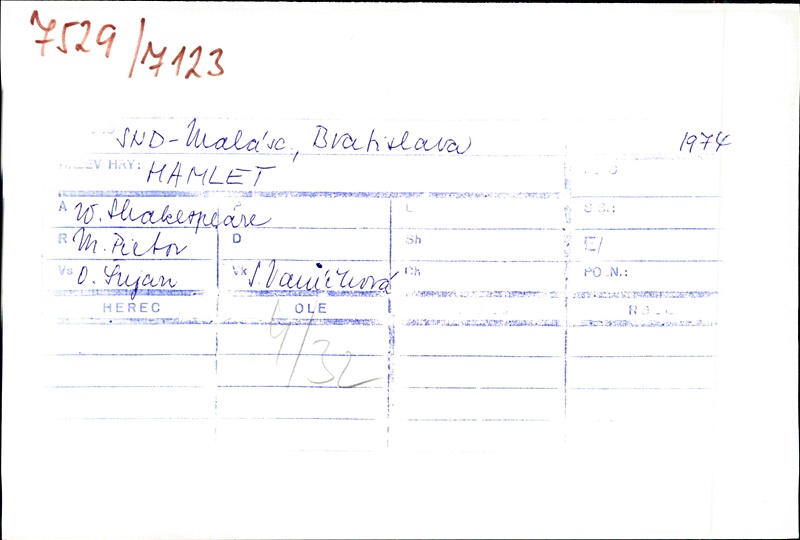 7529/7123
SND-Malá sc., Bratislava 1974
HRY: HAMLET
A W. Shakespeare
R M. Pietor D Sh E/
Vs O. Šujan Vk S. Vaníčková Ch PO .N.:
HEREC OLE
4/32